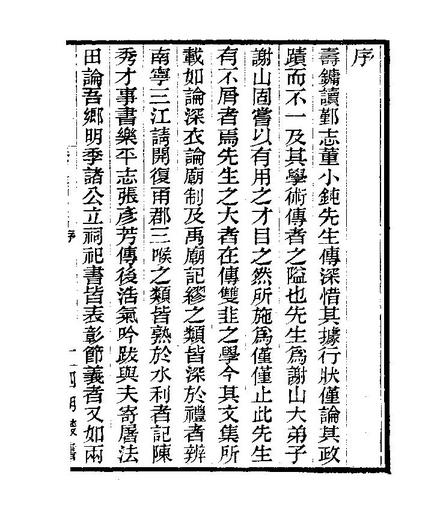 序
壽鏞讀鄞志董小鈍先生傳深惜其據行狀僅論其政
蹟而不一及其學術傳者之隘也先生為謝山大弟子
謝山固嘗以有用之才目之然所施為僅僅止此先生
有不屑者焉先生之大者在傳雙韭之學今其文集所
載如論深衣論廟制及禹廟記繆之類皆深於禮者辨
南寧三江請開復甬郡三喉之類皆熟於水利者記陳
秀才事書樂平志張彥芳傳後浩氣吟跋與夫寄屠法
田論吾鄉明季諸公立祠祀書皆表彰節義者又如兩
序
一四明叢書